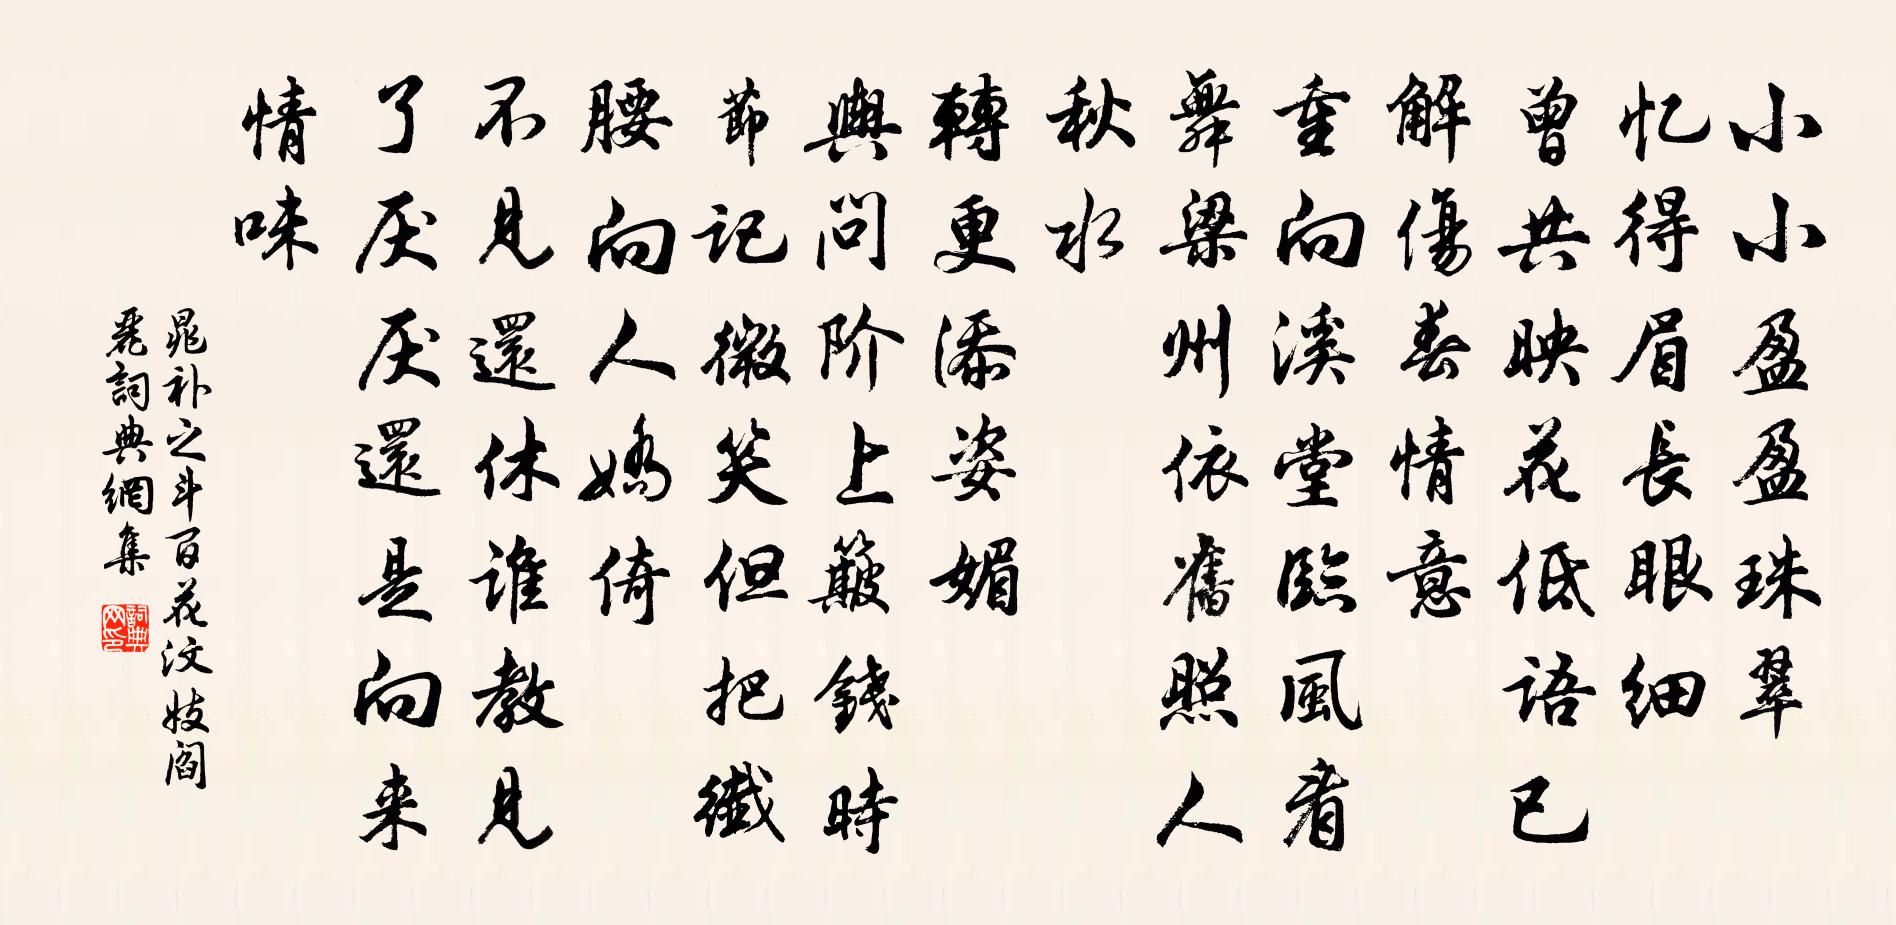 小小盈盈珠翠
忆得眉長眼细
曾共映花低语已
解傷春情意
重向溪堂臨風看
舞梁州依舊照人
秋水
轉更添姿媚
與問阶上簸錢時
節记微笑但把纖
腰向人嬌倚
不見還休谁教見
了厌厌還是向来
情味
晁补之斗百花汶妓阎
麗詞典網集
詞典网印